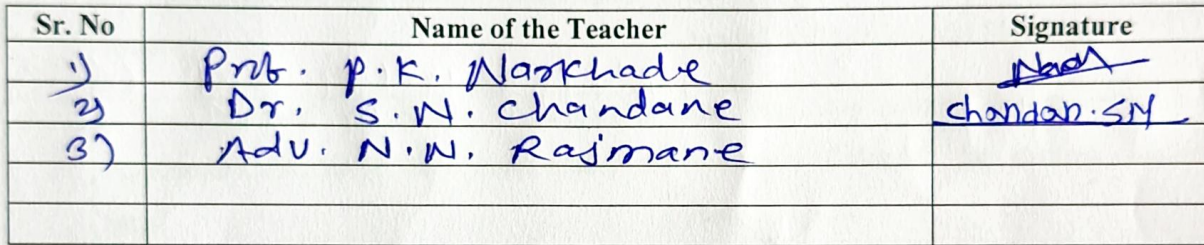 Sr. No Name of the Teacher Signature
1) Prof. P. K. Narkhade
2) Dr. S. N. Chandane Chandan. SN
3) Adv. N. N. Rajmane